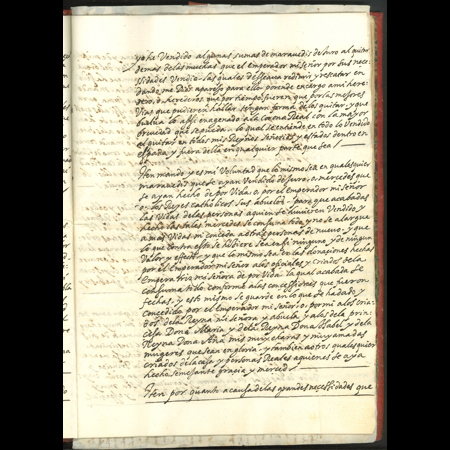 yo he Vendido algunas sumas de maravedis de Juro al quitar
demas de las muchas que el emperador mi Señor por sus nece
ssidades Vendio. las quales desseava redimir, y restatar en
dandome Dios aparejo para ello. porende encargo a mi here
dero, o herederos que por tiempo fueren que por las mejores
Vias que pudieren hallar tengan forma de los quitar, y que
buelva lo assi enagenado a la Corona Real con la mayor
brevedad que se pueda. lo qual se entiende en todo lo Vendido
al quitar en todos mis Reynos Señorios y estados dentro en
españa y fuera della en qualquier parte que sea
Iten mando y es mi Voluntad que lo mismo sea en qualesquier
maravedis que se ayan Vendido de Juro, o mercedes que
se ayan hecho de por Vida, o por el emperador mi señor
o los Reyes catholicos sus abuelos. para que acabadas
las Vidas de las personas a quien se huvieren Vendido y
hecho las tales mercedes se consuma todo y no se alargue
a mas Vidas ni conceda a otras personas de nuevo, y que
lo que contra esto se hiziere sea en si ninguno y de ningun
Valor y efecto. y que lo mismo sea en las donaciones hechas
por el emperador mi señor a los oficiales y criados de la
Emperatriz mi Señora de por Vida. la qual acabada se
consuma todo conforme a las concessiones que fueron
fechas. y esto mismo se guarde en lo que se ha dado, y
concedido por el emperador mi señor, o por mi a los cria
dos de la Reyna mi Señora y abuela y a los de la prin
cesa Doña Maria y de la Reyna Doña Isabel y de la
Reyna Doña Ana mis muy claras y muy amadas
mugeres que sean en gloria. y tambien a otros qualesquier
criados de la casa y personas Reales a quienes se aya
hecho semejante gracia y merced
Iten por quanto a causa de las grandes necessidades que